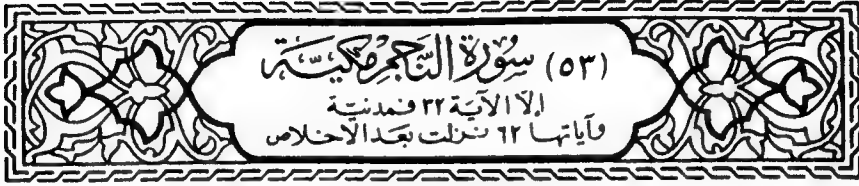 (٥٣) سُورَة النَّجْمِ مَكِّيَّة
إلّا الآيَة ٣٢ فمدنيّة
وآياتها ٦٢ نزلت بعد الاخلاص